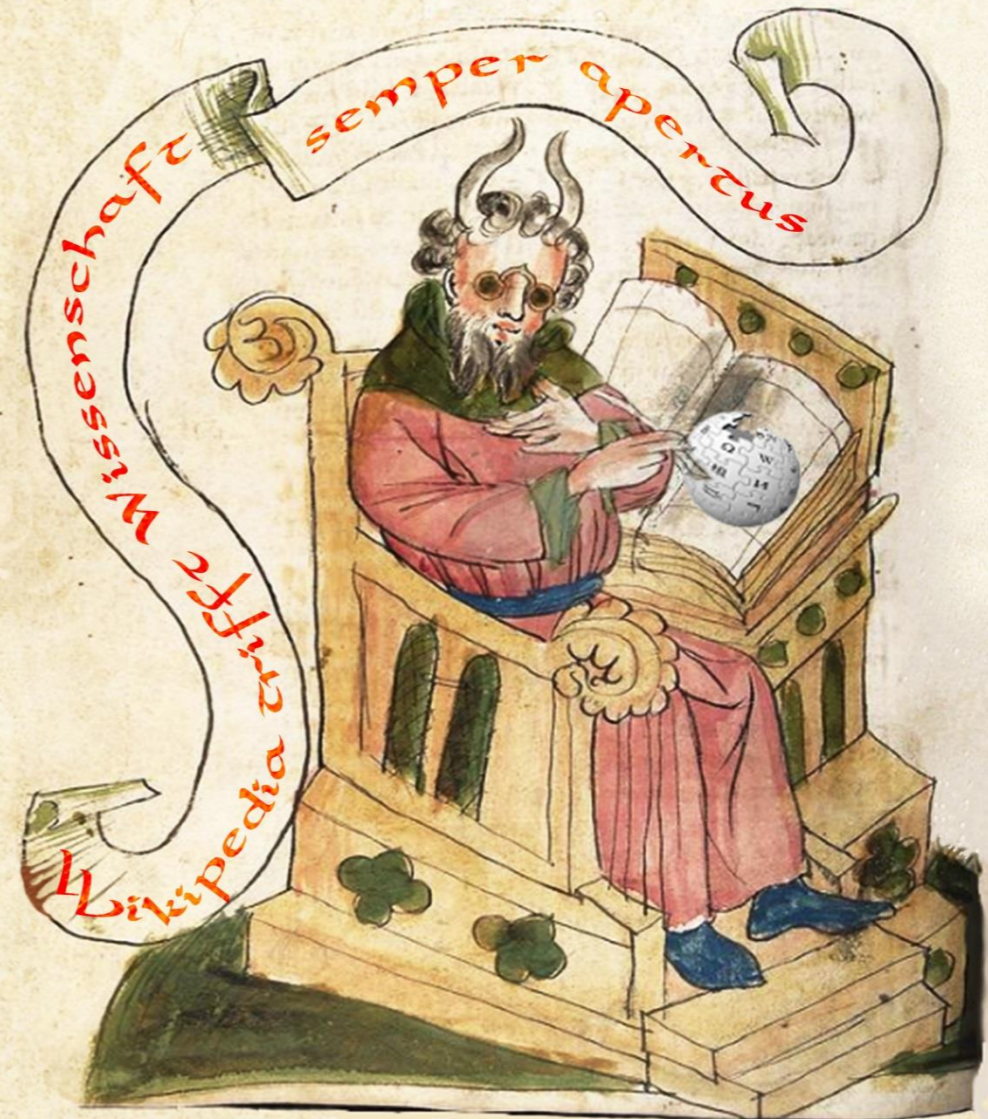 Wikipedia trifft Wissenschaft
semper apertus
Ω W
И